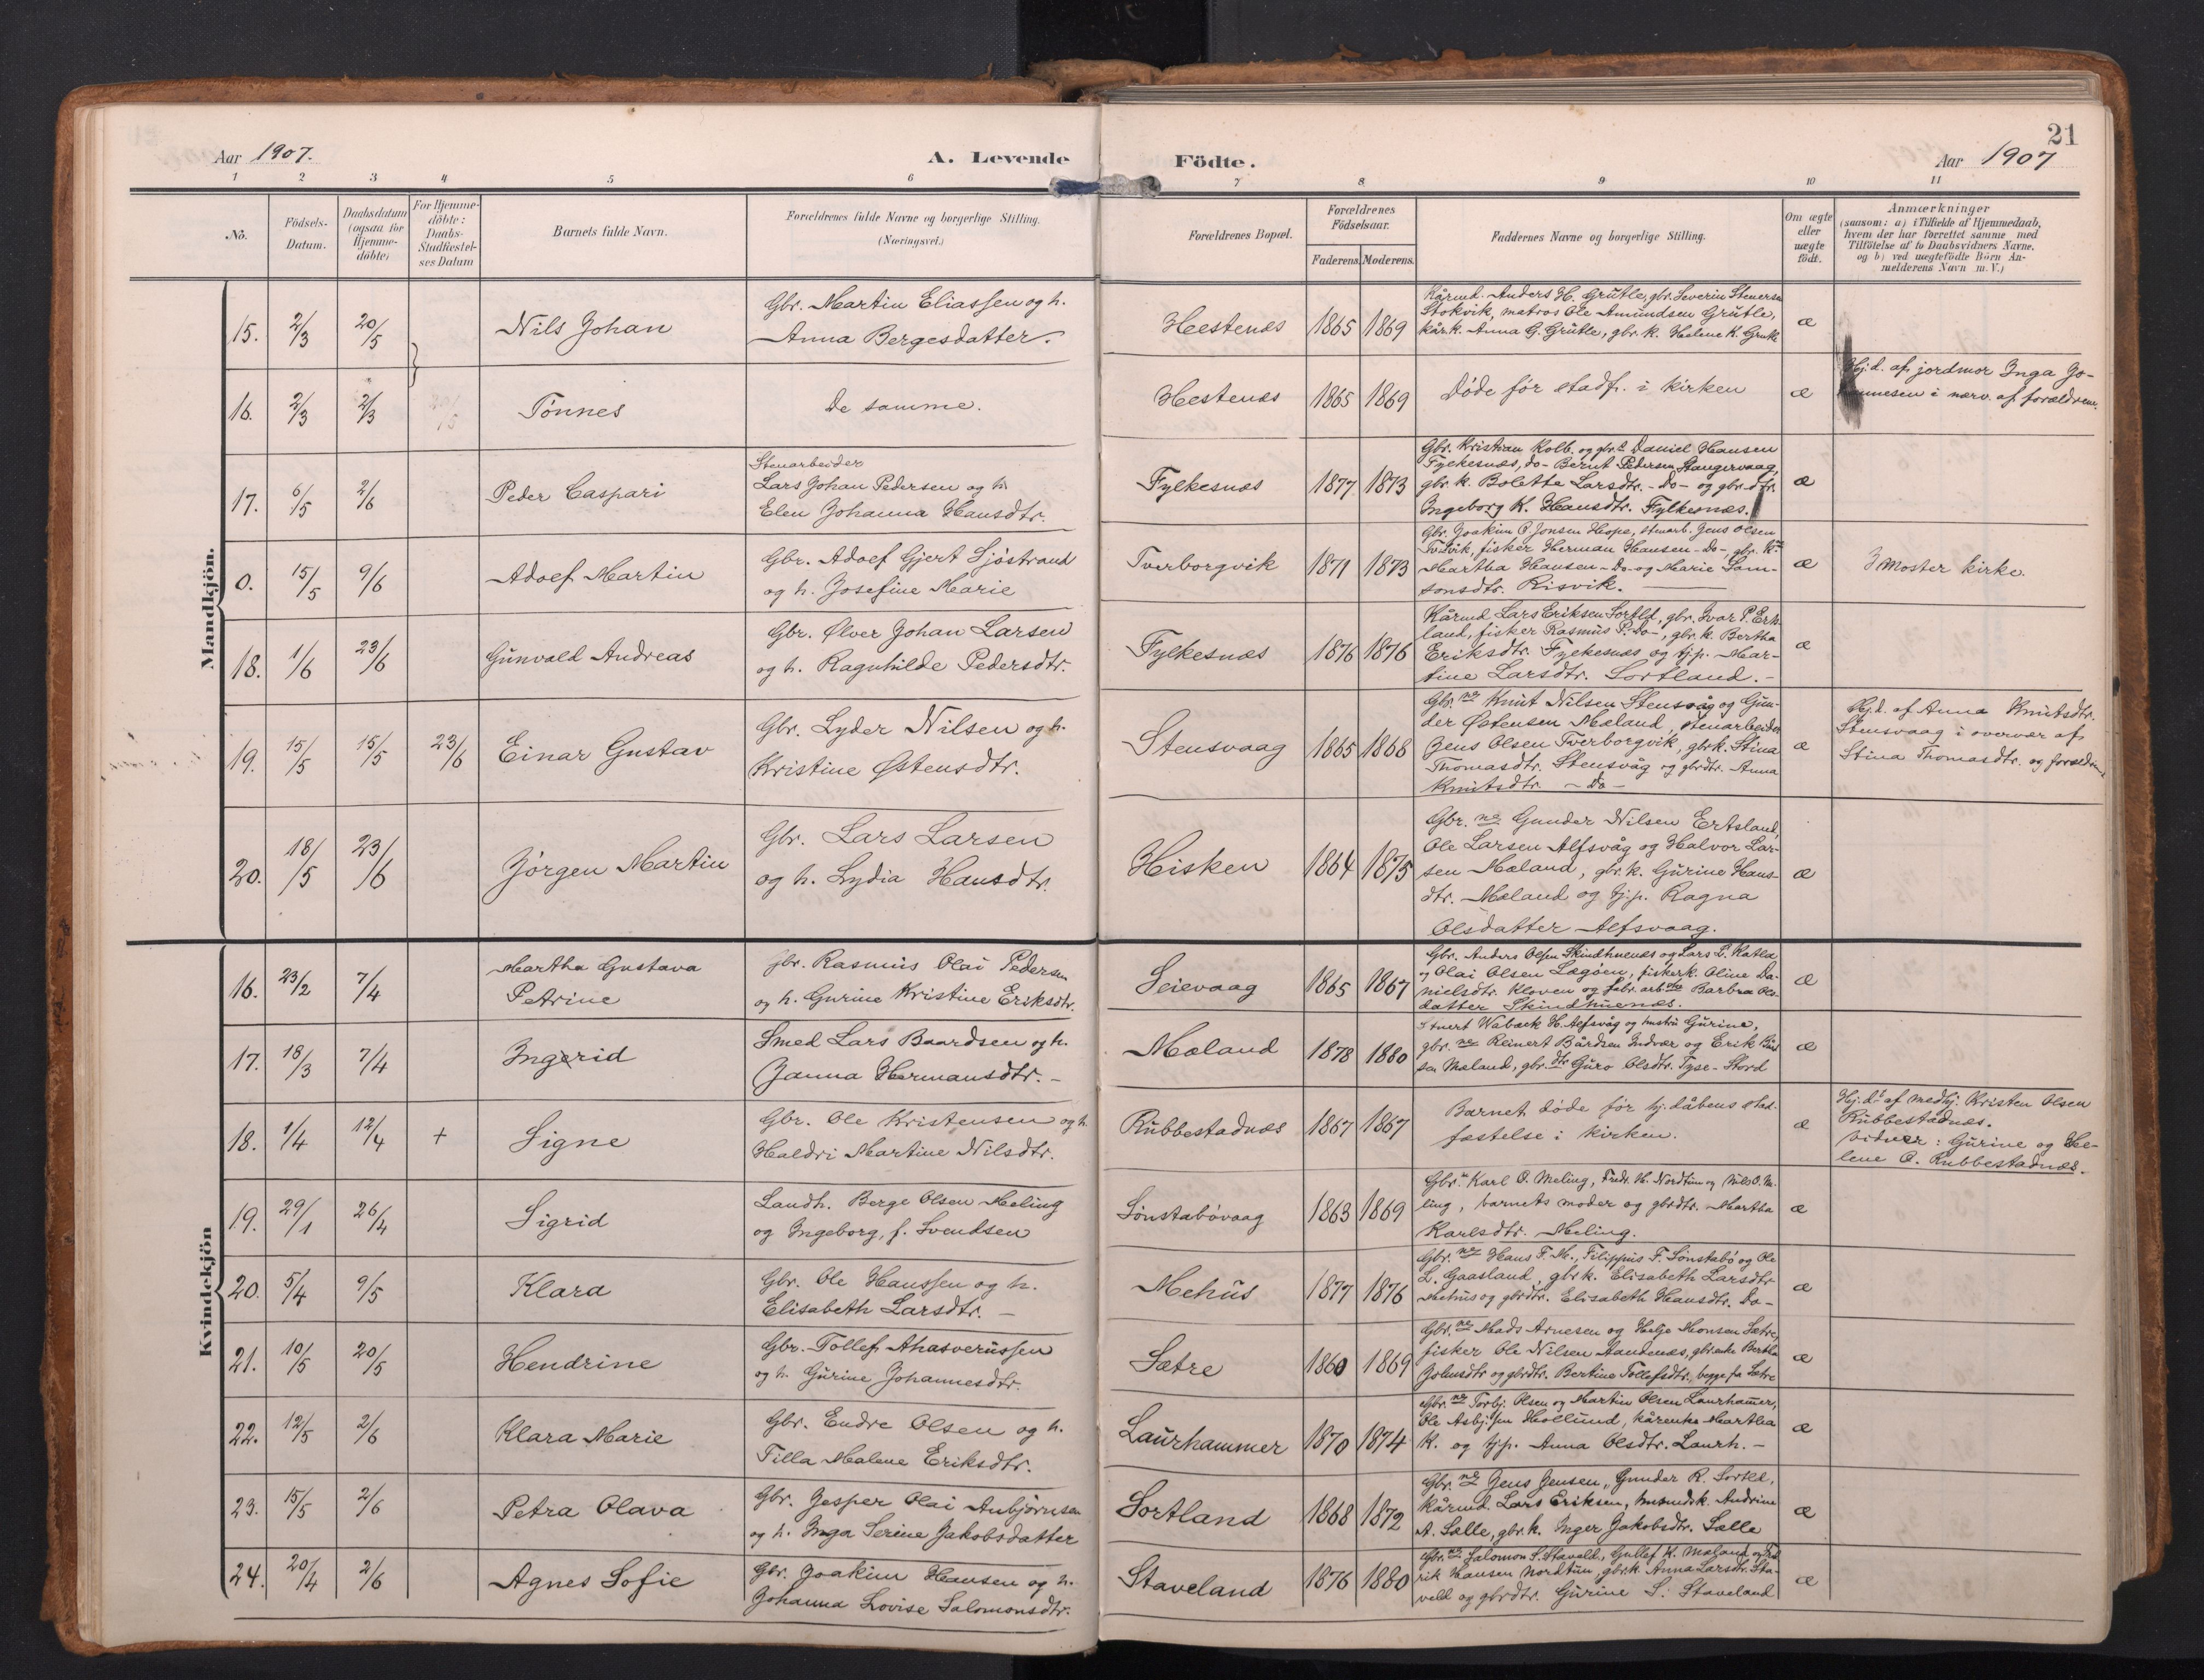 21
Aar 1907.
A. Levende
Födte.
Aar 1907
1 2 3 4 5 6 7 8 9 10 11
No.
Födsels-Datum.
Daabsdatum (ogsaa for Hjemme-döbte)
For Hjemme-döbte: Daabs-Stadfæstel-ses Datum
Barnets fulde Navn.
Forældrenes fulde Navne og borgerlige Stilling.
(Næringsvei.)
Forældrenes Bopæl.
Forældrenes Födselsaar.
Faderens. Moderens.
Faddernes Navne og borgerlige Stilling.
Om ægte eller uægte födt.
Anmærkninger
(saasom: a) i Tilfælde af Hjemmedaab,
hvem der har forrettet samme med
Tilföielse af to Daabsvidners Navne.
og b) ved uægtefödte Börn An-
melderens Navn m. V.)
Mandkjön.
15. 2/3 20/5 Nils Johan
Gbr. Martin Eliassen og h.
Anna Bergesdatter.
Hestenæs 1865 1869
Kårmd. Anders H. Grütle, gbr. Severin Stenersen
Stokvik, matros Ole Amundsen Grütle,
kårk. Anna G. Grütle, gbr. k. Helene K. Grutle
æ
16. 2/3 2/3 Tønnes
De samme.
Hestenæs 1865 1869
Døde før stadf. i kirken
æ
Hj.d. af jordmor Inga Jo-
hannesen i nærv. af forældrene.
17. 6/5 2/6 Peder Caspari
Stenarbeider
Lars Johan Pedersen og h.
Elen Johanna Hansdtr.
Fylkesnæs 1877 1873
Gbr. Kristian Kolb. og gbr. Daniel Hansen
Fylkesnæs, do- Bernt Pedersen Stangervaag,
gbr. k. Bolette Larsdtr. -Do- og gbr.dtr.
Ingeborg K. Hansdtr. Fylkesnæs.
æ
0. 15/5 9/6 Adolf Martin
Gbr. Adolf Gjert Sjøstrand
og h. Josefine Marie
Tverborgvik 1871 1873
Gbr. Joakim P. Jonsen Hope, stenarb. Jens Olsen
Tv.vik, fisker Herman Hansen -Do-, gbr. k.
Martha Hansen -Do- og Marie Sam-
sonsdtr. Risvik.
æ
I Moster kirke.
18. 1/6 23/6 Gunvald Andreas
Gbr. Ølver Johan Larsen
og h. Ragnhilde Pedersdtr.
Fylkesnæs 1876 1876
Kårmd Lars Eriksen Sortld, gbr. Ivar P. Erts-
land, fisker Rasmus P. Do-, gbr. k. Bertha
Eriksdtr. Fylkesnæs og tj.p. Mar-
tine Larsdtr. Sortland. -
æ
19. 15/5 15/5 23/6 Einar Gustav
Gbr. Lyder Nilsen og h.
Kristine Østensdtr.
Stensvaag 1865 1868
Gbr.ne Knut Nilsen Stensvåg og Gun-
der Østensen Mæland, stenarbeider
Jens Olsen Tverborgvik, gbrk. Stina
Thomasdtr. Stensvåg og gbrdtr. Anna
Knutsdtr. -Do-
æ
Hj.d. af Anna Knutsdtr.
Stensvaag i overvær af
Stina Thomasdtr. og forældrene
20. 18/5 23/6 Jørgen Martin
Gbr. Lars Larsen
og h. Lydia Hansdtr.
Hisken 1864 1875
Gbr.ne Gunder Nilsen Ertsland,
Ole Larsen Alfsvåg og Halvor Lar-
sen Mæland, gbr. k. Gurine Hans-
dtr. Mæland og tj.p. Ragna
Olsdatter Alfsvaag.
æ
Kvindekjön
16. 23/2 7/4 Martha Gustava
Petrine
gbr. Rasmus Olai Pedersen
og h. Gurine Kristine Eriksdtr.
Seievaag 1865 1867
Gbr. Anders Olsen Skindhuenæs og Lars L. Katla
og Olai Olsen Lægøen, fiskerk. Oline Da-
nielsdtr. Kloven og fabr. arb. Barbra Ols-
datter Skindhuenæs.
æ
17. 18/3 7/4 Ingerid
Smed Lars Baardsen og h.
Janna Hermansdtr. -
Mæland 1878 1880
Stuert Waback H. Alfsvåg og hustru Gurine,
gbr.ne Reinert Bårdsen Indvær og Erik Bård
sen Mæland, gbr.dtr Guro Olsdtr. Tyse-Stord
æ
18. 1/4 12/4 + Signe
Gbr. Ole Kristensen og h.
Haldri Martine Nilsdtr.
Rubbestadnæs 1867 1867
Barnet døde før hj.dåbens stad-
fæstelse i kirken.
æ
Hj.d. af medhj. Kristen Olsen
Rubbestadnæs.
Vidner: Gurine og He-
lene O. Rubbestadnæs.
19. 29/1 26/4 Sigrid
Landh. Berge Olsen Meling
og Ingeborg, f. Svendsen
Sønstabøvaag 1863 1869
Gbr. Karl O. Meling, Fredr. H. Nordtun og Nils O. Me-
ling, barnets moder og gbrdtr. Martha
Karlsdtr. Meling.
æ
20. 5/4 9/5 Klara
Gbr. Ole Hanssen og h.
Elisabeth Larsdtr. -
Mehus 1877 1876
Gbr.ne Hans F. M., Filippus F. Sønstabø og Ole
L. Gaasland, gbrk. Elisabeth Larsdtr
Mehus og gbrdtr. Elisabeth Hansdtr. Do-
æ
21. 10/5 20/5 Hendrine
Gbr. Tollef Ahasverussen
og h. Gurine Johannesdtr.
Sætre 1860 1869
Gbr.ne Mads Arnesen og Helje Monsen Sætre,
fisker Ole Nilsen Aandenæs, gbr.enke Bertha
Johnsdtr og gbrdtr. Bertine Tollefsdtr, begge fra Sætre
æ
22. 12/5 2/6 Klara Marie
Gbr. Endre Olsen og h.
Tilla Malene Eriksdtr.
Laurhammer 1870 1874
Gbr.ne Torbj. Olsen og Martin Olsen Laurhammer,
Ole Asbj.sen Hollund, kårenke Martha
K. og tj.p. Anna Olsdtr. Laurh. -
æ
23. 15/5 2/6 Petra Olava
Gbr. Jesper Olai Anbjørnsen
og h. Inga Serine Jakobsdatter
Sortland 1868 1872
Gbr.ne Jens Jensen, Gunder R. Sortld.
Kårmd. Lars Eriksen, husmdsk. Andrine
A. Salle, gbr.k. Inger Jakobsdtr. Salle
æ
24. 20/4 2/6 Agnes Sofie
Gbr. Joakim Hansen og h.
Johanna Lovise Salomonsdtr.
Staveland 1876 1880
Gbr.ne Salomon S. Staveld, Gullef K. Mæland og Fred
rik Hansen Nordtun, gbr.k. Anna Larsdtr. Sta-
veld og gbrdtr. Gurine S. Staveland
æ